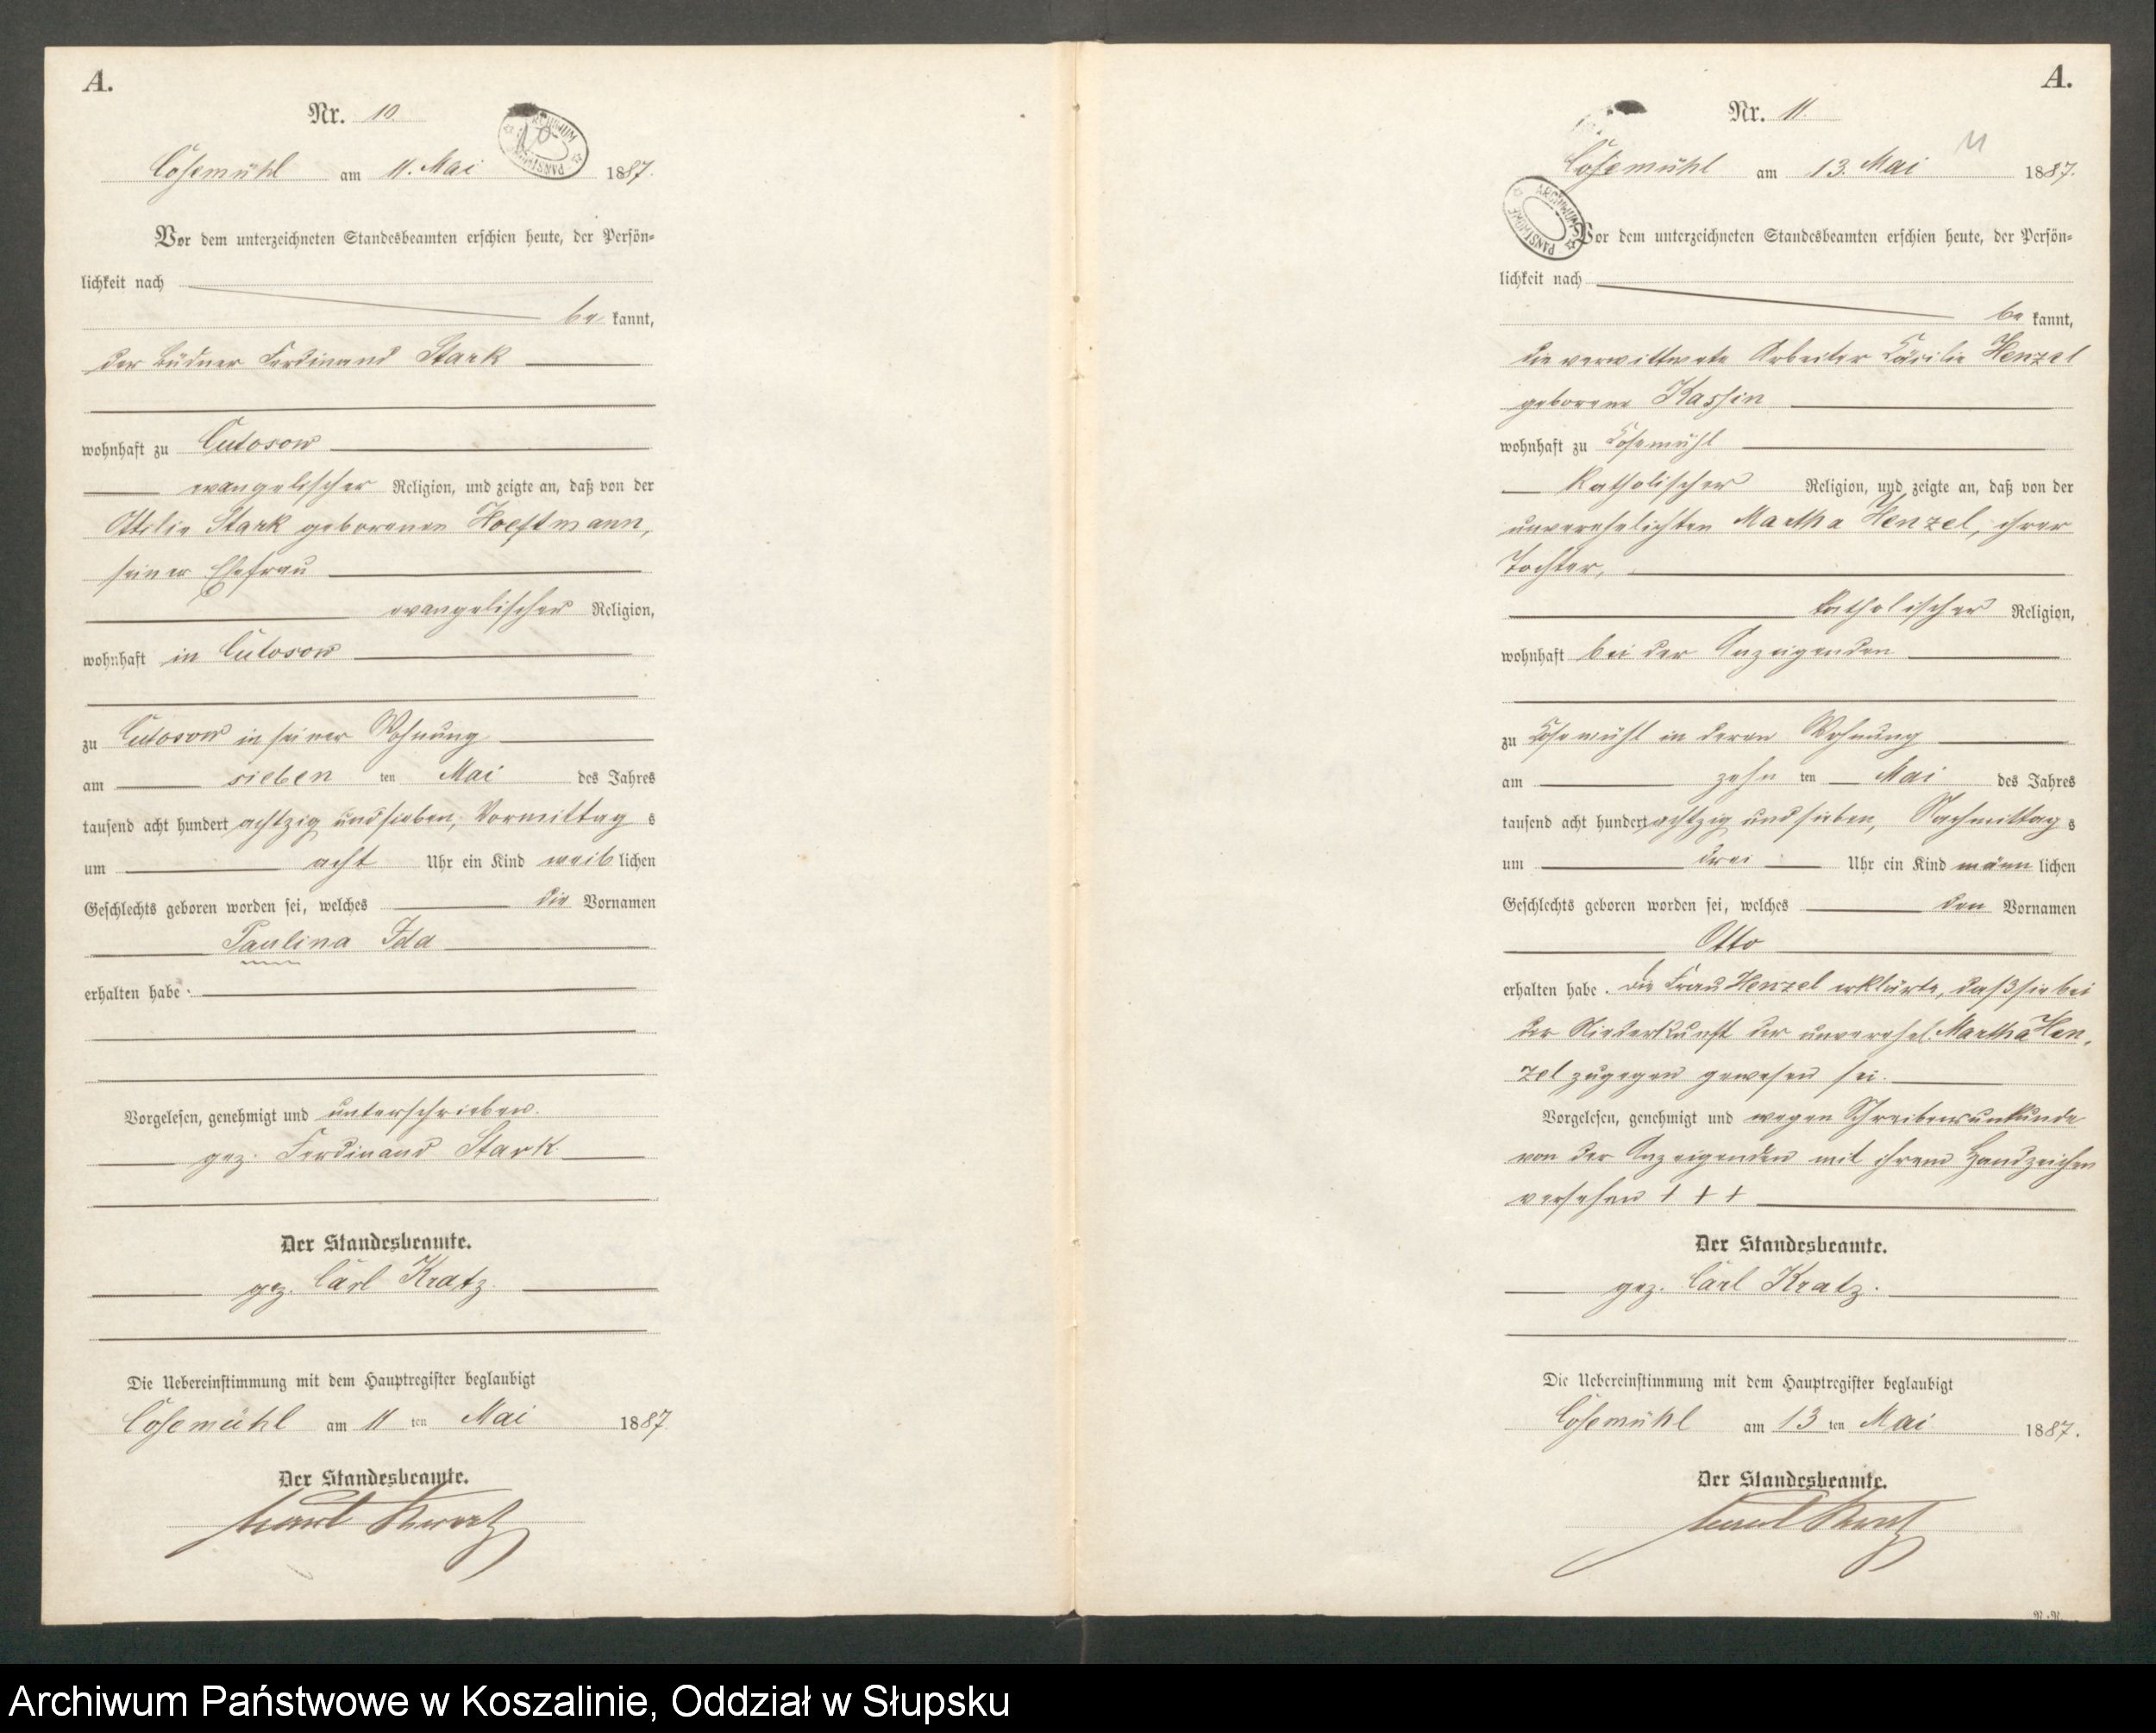 A.
Nr. 10.
Cosemühl am 11. Mai 1887.
Vor dem unterzeichneten Standesbeamten erschien heute, der Persön=
lichkeit nach
be kannt,
der Büdner Ferdinand Stark
wohnhaft zu Culsow
evangelischer Religion, und zeigte an, daß von der
Ottilie Stark geborenen Hoeftmann,
seiner Ehefrau
evangelischer Religion,
wohnhaft in
zu in seiner Wohnung
am sieben ten Mai des Jahres
tausend acht hundert achtzig und sieben, Vormittag s
um acht Uhr ein Kind weib lichen
Geschlechts geboren worden sei, welches die Vornamen
Paulina Ida
erhalten habe.
Vorgelesen, genehmigt und unterschrieben.
gez. Ferdinand Stark
Der Standesbeamte.
gez. Carl Kratz.
Die Uebereinstimmung mit dem Hauptregister beglaubigt
Cosemühl am 11 ten Mai 1887.
Der Standesbeamte.
Carl Kratz
A.
Nr. 11.
11
Cosemühl am 13. Mai 1887.
ARCHIWUM PAŃSTWOWE
Vor dem unterzeichneten Standesbeamten erschien heute, der Persön=
lichkeit nach
be kannt,
die verwittwete Arbeiter Cäcilie Henzel
geborene Kassin
wohnhaft zu Cosemühl
katholischer Religion, und zeigte an, daß von der
unverehelichten Martha Henzel, ihrer
Tochter,
katholischer Religion,
wohnhaft bei der Anzeigenden
zu Cosemühl in deren Wohnung
am zehn ten Mai des Jahres
tausend acht hundert achtzig und sieben, Nachmittag s
um drei Uhr ein Kind männ lichen
Geschlechts geboren worden sei, welches den Vornamen
Otto
erhalten habe. Die Frau Henzel erklärte, daß sie bei
der Niederkunft der unverehel. Martha Hen,
zel zugegen gewesen sei.
Vorgelesen, genehmigt und wegen Schreibensunkunde
von der Anzeigenden mit ihrem Handzeichen
versehen + + +
Der Standesbeamte.
gez. Carl Kratz.
Die Uebereinstimmung mit dem Hauptregister beglaubigt
Cosemühl am 13 ten Mai 1887.
Der Standesbeamte.
Carl Kratz
Archiwum Państwowe w Koszalinie, Oddział w Słupsku